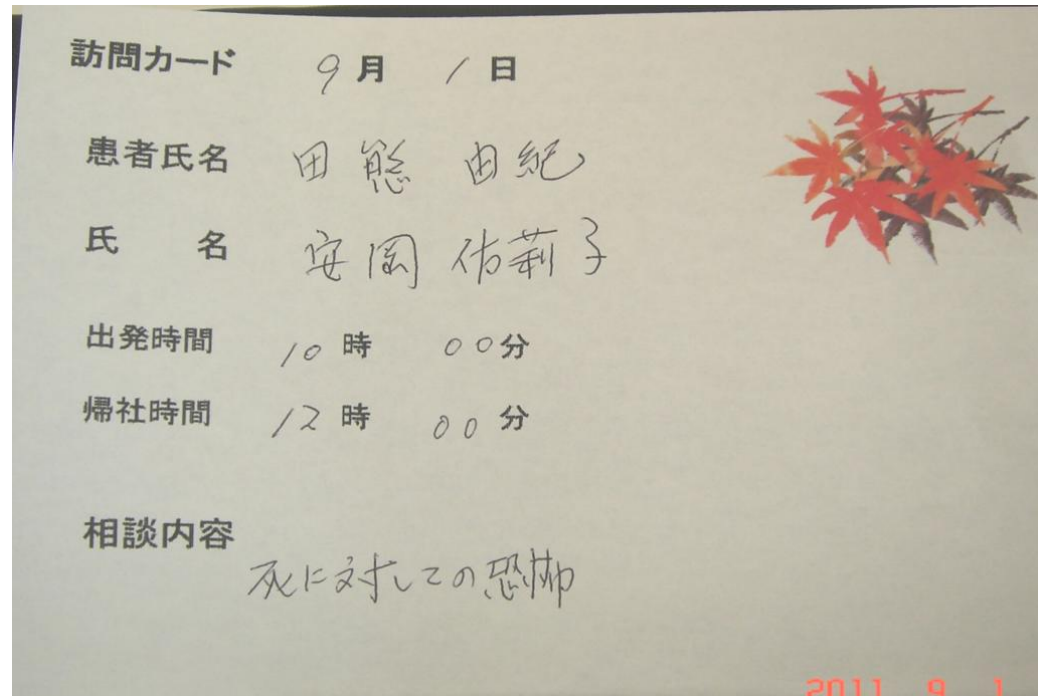 訪問カード 9月 1日
患者氏名 田熊 由紀
氏 名 安岡 佑莉子
出発時間 10時 00分
帰社時間 12時 00分
相談内容
死に対しての恐怖
2011 9 1